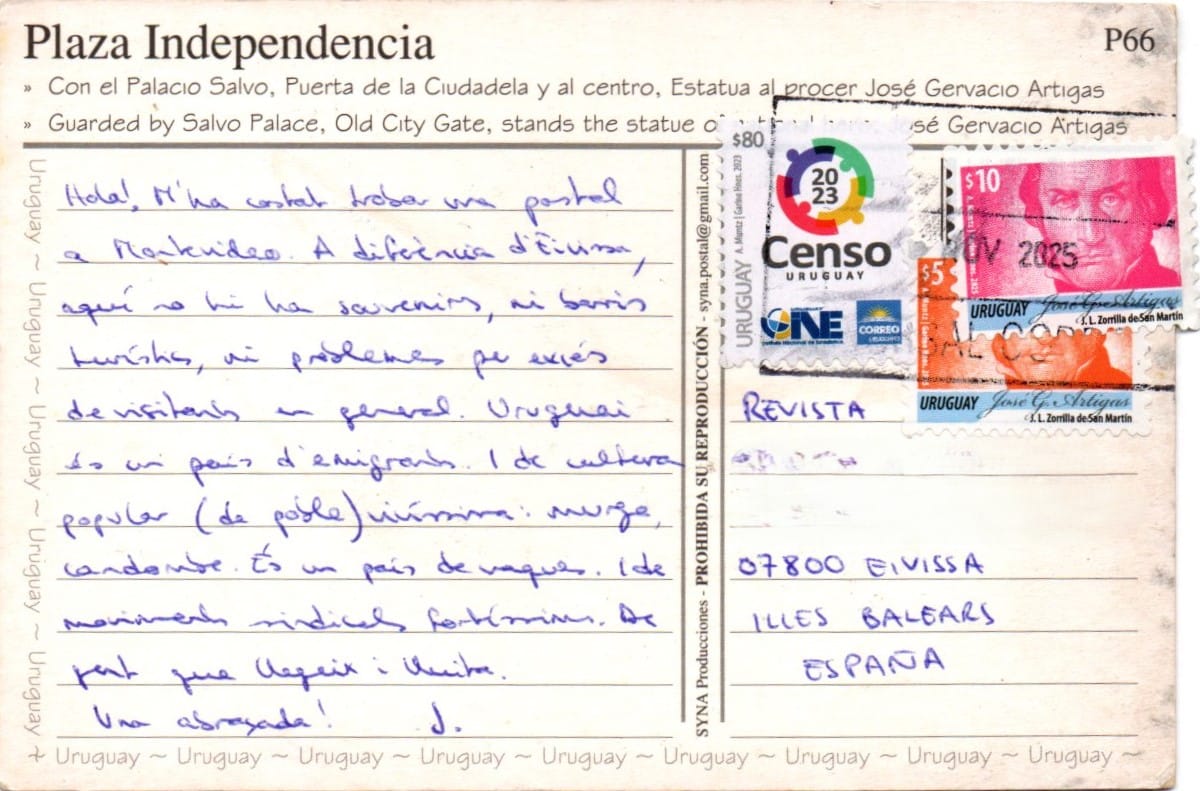 Plaza Independencia
P66
» Con el Palacio Salvo, Puerta de la Ciudadela y al centro, Estatua al procer José Gervacio Artigas
» Guarded by Salvo Palace, Old City Gate, stands the statue of José Gervacio Artigas
Hola! M'ha costat trobar una postal
a Montevideo. A diferència d'Eivissa,
aquí no hi ha souvenirs, ni barris
turístics, ni problemes per excés
de visitants en general. Uruguai
és un país d'emigrants. I de cultura
popular (de poble) viníssima: murga,
candombe. És un país de vaques. I de
moviments sindicals fortíssims. De
gent que llegeix i lluita.
Una abraçada! J.
SYNA Producciones - PROHIBIDA SU REPRODUCCIÓN - syna.postal@gmail.com
$80
URUGUAY A. Muntz | Garino Hnos. 2023
2023
Censo
URUGUAY
INE
CORREO
URUGUAYO
$10
URUGUAY José G. Artigas
J. L. Zorrilla de San Martín
$5
URUGUAY José G. Artigas
J. L. Zorrilla de San Martín
OV 2025
REVISTA
07800 EIVISSA
ILLES BALEARS
ESPAÑA
Uruguay ~ Uruguay ~ Uruguay ~ Uruguay ~ Uruguay
Uruguay ~ Uruguay ~ Uruguay ~ Uruguay ~ Uruguay ~ Uruguay ~ Uruguay ~ Uruguay ~ Uruguay ~